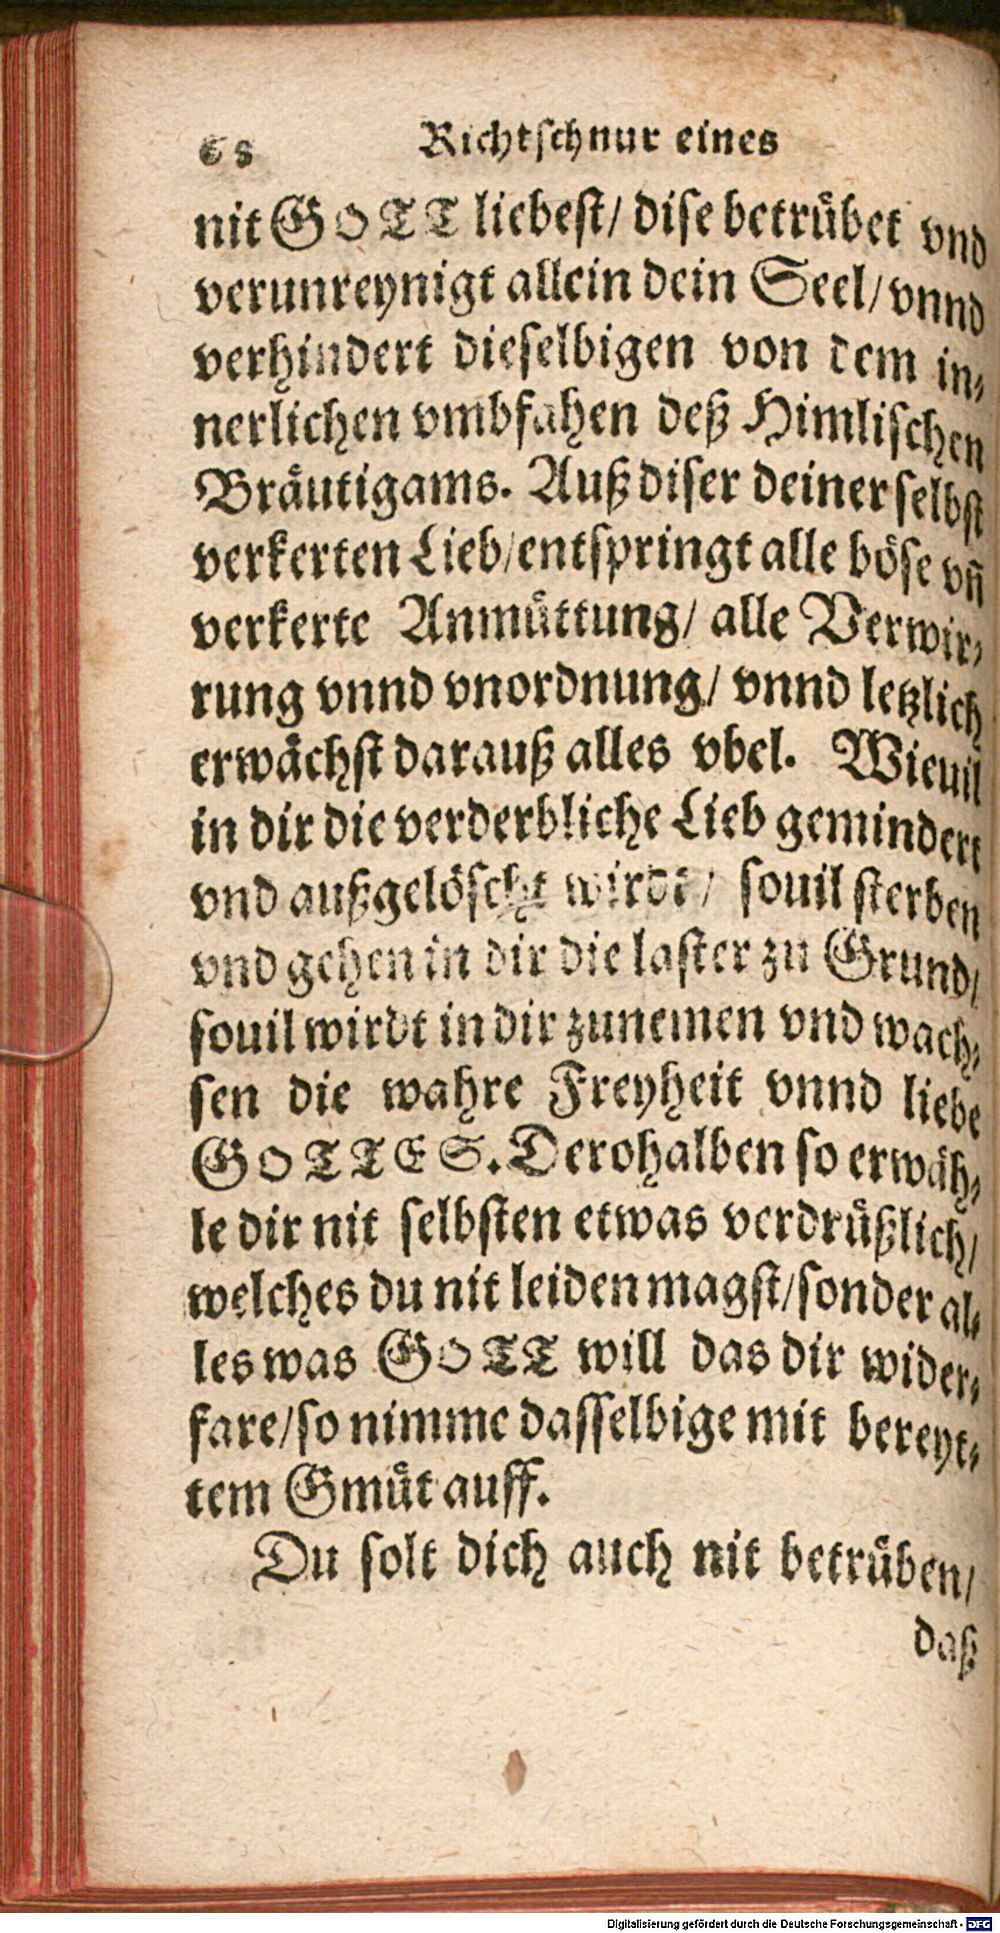 68 Richtſchnur eines
nit GOTT liebeſt/ diſe betrübet vnd
verunreynigt allein dein Seel/ vnnd
verhindert dieſelbigen von dem in⸗
nerlichen vmbfahen deß Himliſchen
Bräutigams. Auß diſer deiner ſelbſt
verkerten Lieb/ entſpringt alle böſe vñ
verkerte Anmüttung/ alle Verwir⸗
rung vnnd vnordnung/ vnnd letzlich
erwächſt darauß alles vbel. Wieuil
in dir die verderbliche Lieb gemindert
vnd außgelöſcht wirdt/ ſouil ſterben
vnd gehen in dir die laſter zu Grund/
ſouil wirdt in dir zunemen vnd wach⸗
ſen die wahre Freyheit vnnd liebe
GOTTES. Derohalben ſo erwäh⸗
le dir nit ſelbſten etwas verdrüßlich/
welches du nit leiden magſt/ ſonder al⸗
les was GOTT will das dir wider⸗
fare/ ſo nimme daſſelbige mit bereyt⸗
tem Gmüt auff.
Du ſolt dich auch nit betrüben/
daß
Digitalisierung gefördert durch die Deutsche Forschungsgemeinschaft - DFG